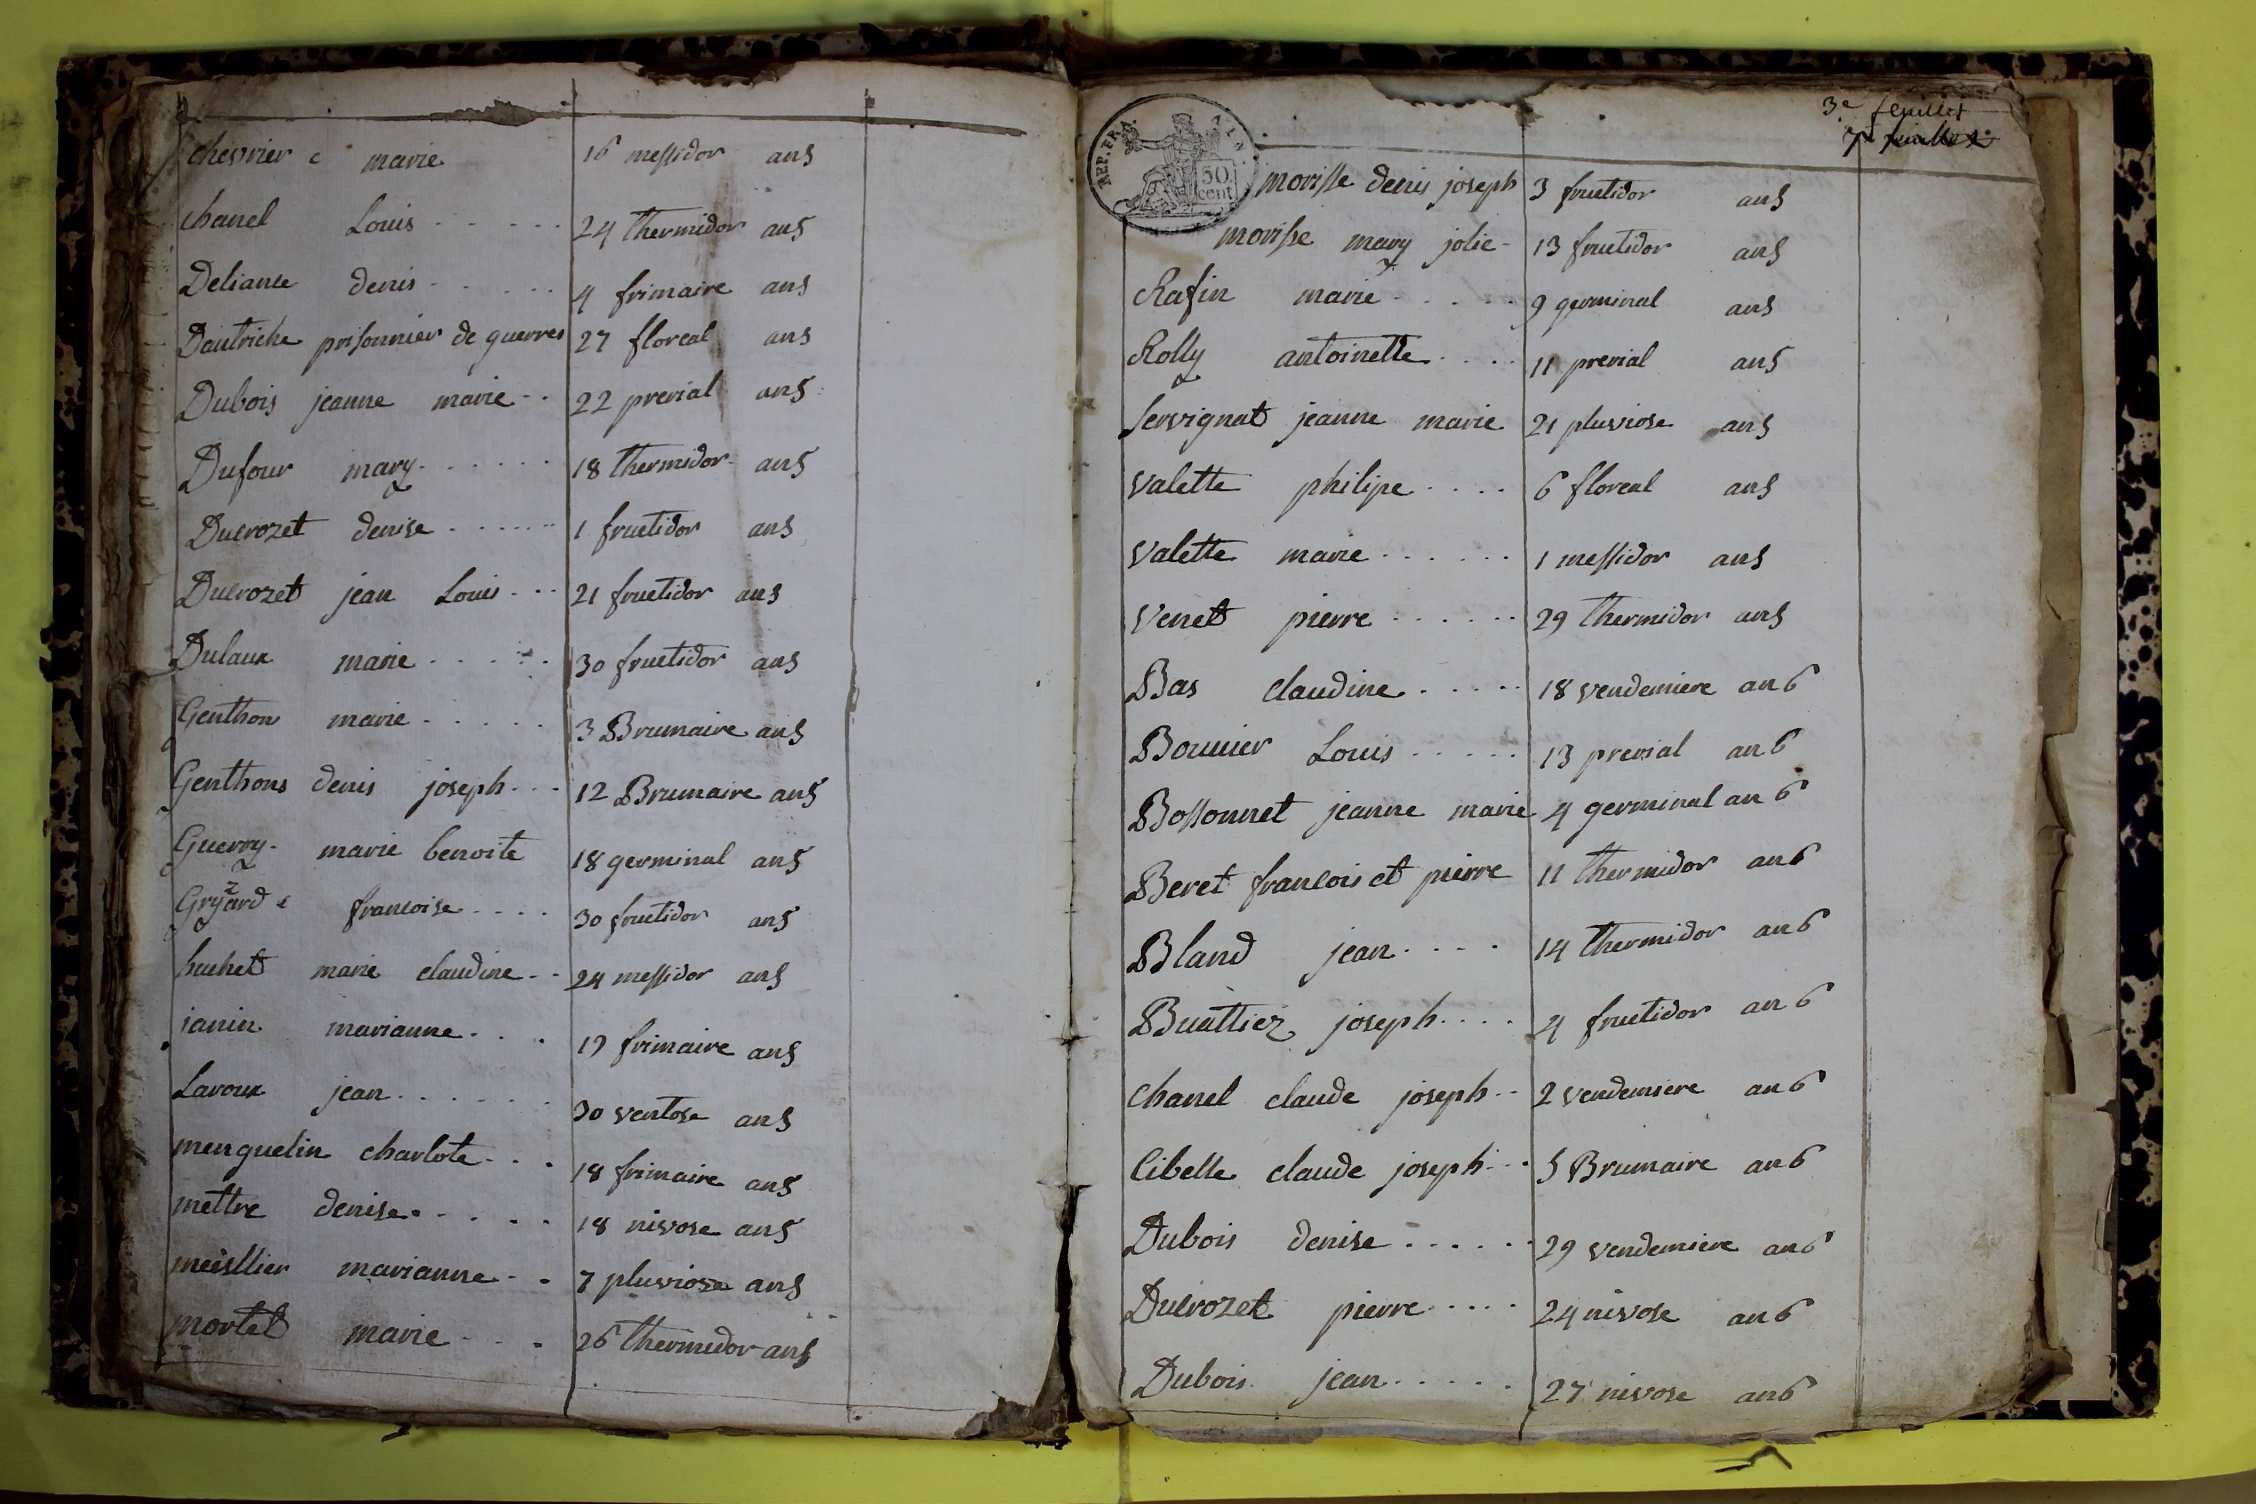 chevrier c marie 16 messidor an 5
chanel Louis 24 thermidor an 5
Deliance denis 4 frimaire an 5
Dautriche prisonnier de guerres 27 floreal an 5
Dubois jeanne marie 22 prerial an 5
Dufour mary 18 thermidor an 5
Ducrozet denise 1 fructidor an 5
Ducrozet jean Louis 21 fructidor an 5
Dulaux marie 30 fructidor an 5
Genthon marie 3 Brumaire an 5
Genthons denis joseph 12 Brumaire an 5
Guerry marie benoite 18 germinal an 5
Gryzard francoise 30 fructidor an 5
huchet marie claudine 24 messidor an 5
janin marianne 19 frimaire an 5
Laroux jean 30 ventose an 5
menguelin charlote 18 frimaire an 5
mettre denise 18 nivose an 5
meisllier marianne 7 pluviose an 5
mortel marie 26 thermidor an 5
3e feuillet
REP. FRA. 50 cent
morisse denis joseph 3 fructidor an 5
morisse mary jolie 13 fructidor an 5
Rafin marie 9 germinal an 5
Rolly antoinette 11 prerial an 5
Servignat jeanne marie 21 pluviose an 5
Valette philipe 6 floreal an 5
Valette marie 1 messidor an 5
Venet pierre 29 thermidor an 5
Bas claudine 18 vendemiere an 6
Bouvier Louis 13 prerial an 6
Bossonnet jeanne marie 4 germinal an 6
Beret francois et pierre 11 thermidor an 6
Bland jean 14 thermidor an 6
Buattiez joseph 4 fructidor an 6
chanel claude joseph 2 vendemiere an 6
Cibelle claude joseph 5 Brumaire an 6
Dubois denise 29 vendemiere an 6
Ducrozet pierre 24 nivose an 6
Dubois jean 27 nivose an 6